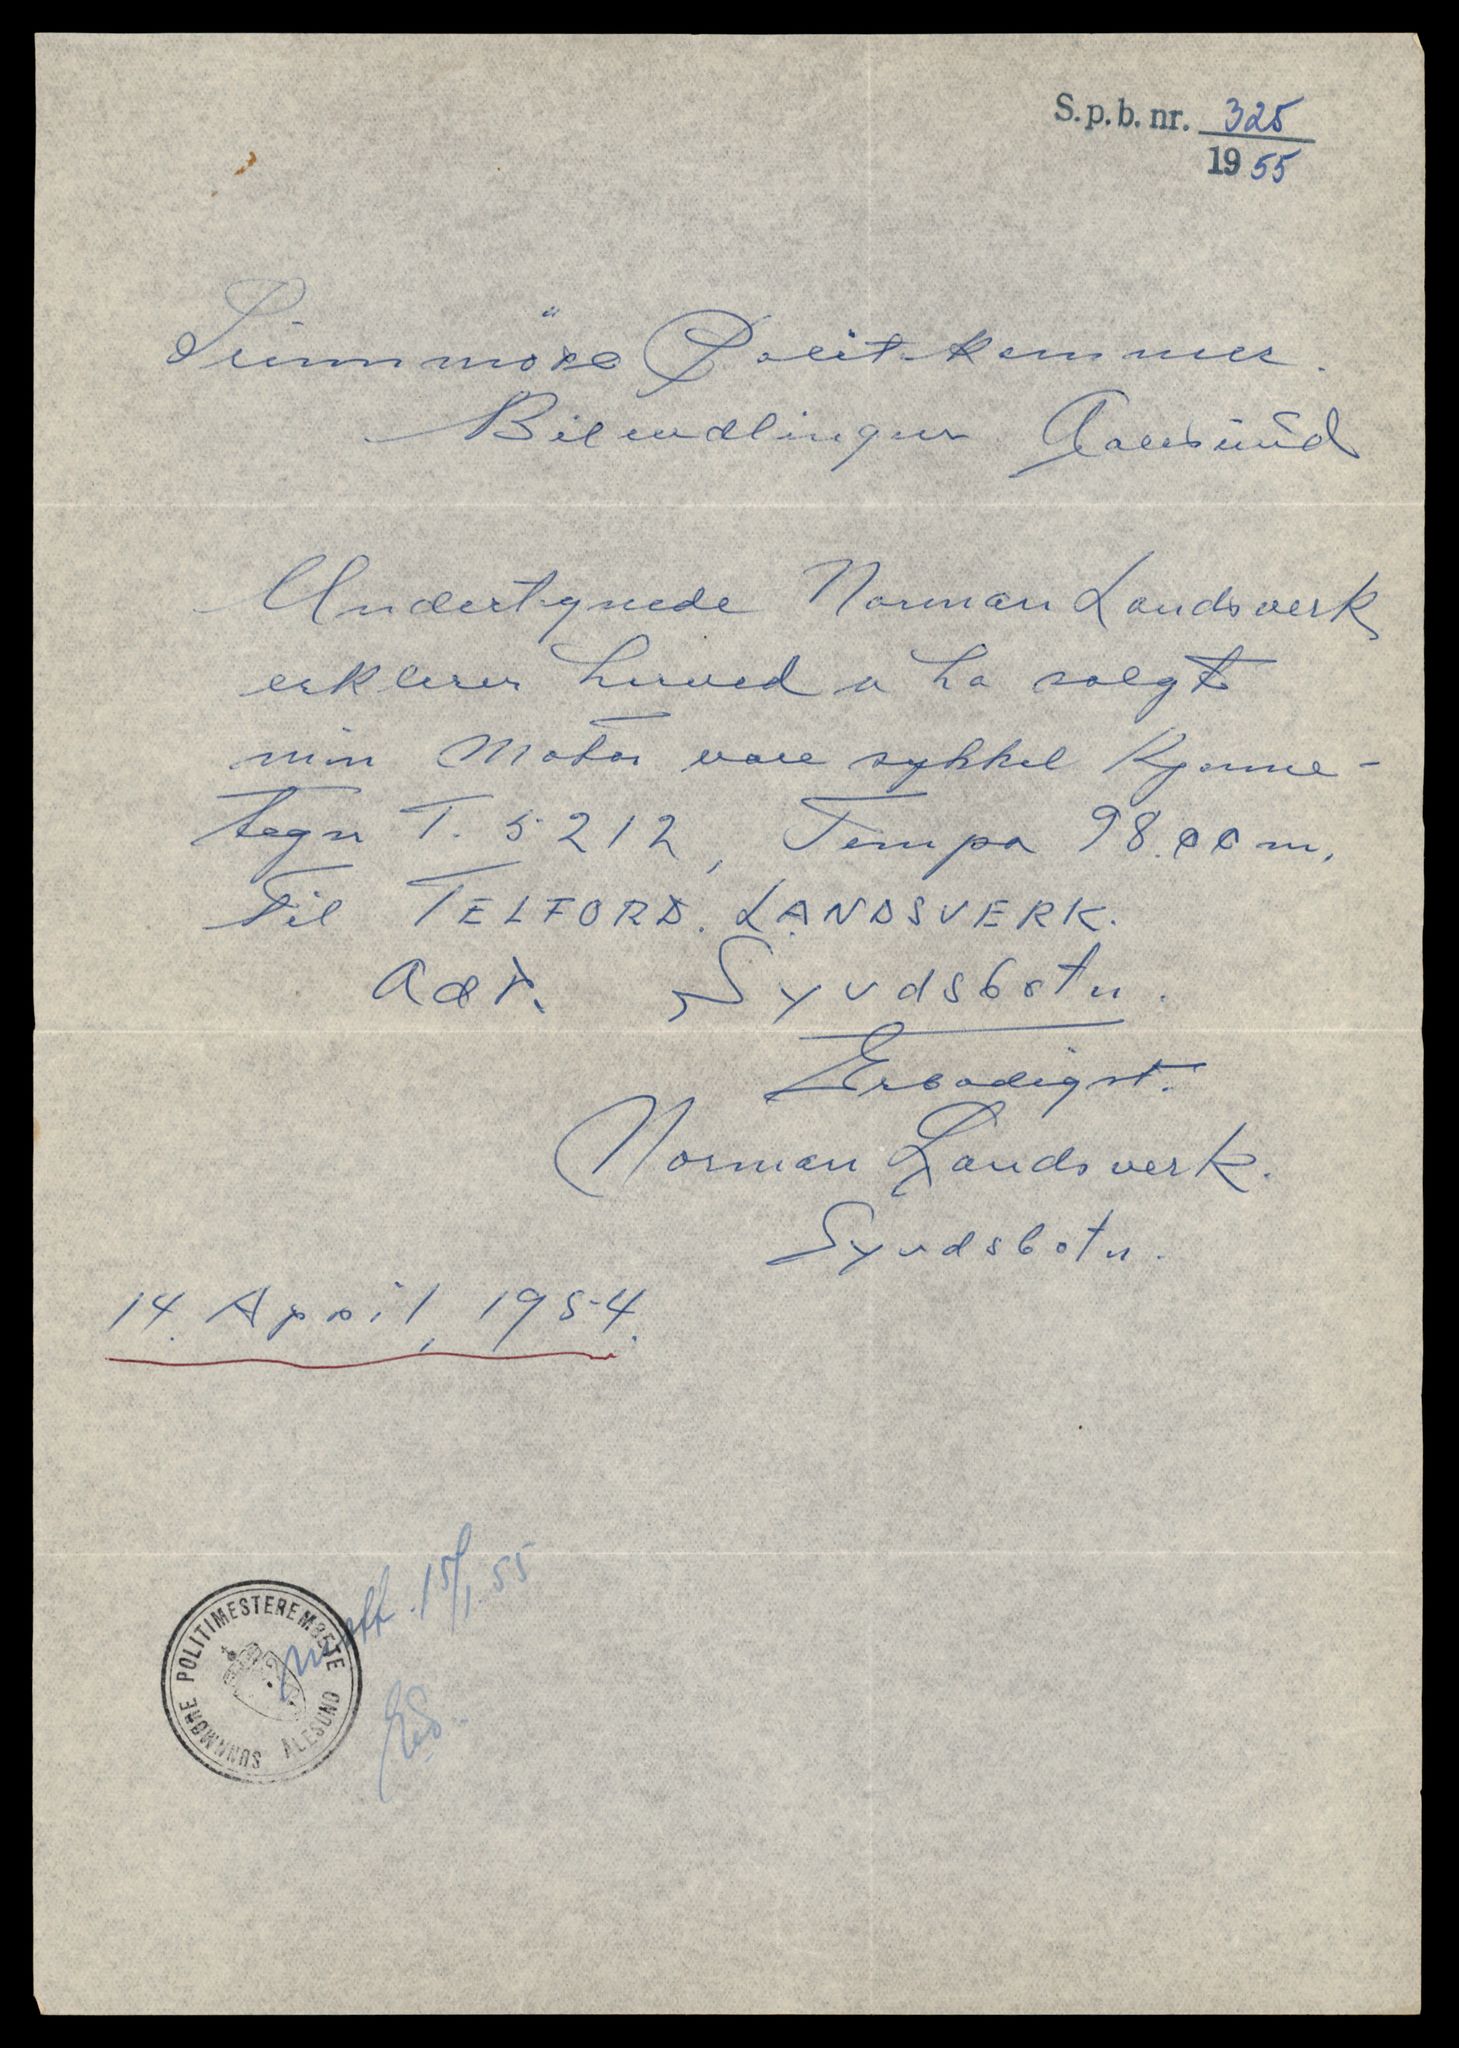 S.p.b. nr. 325
1955
Sunnmöre Politkammer.
Bilavdlingen Aalesund
Undertegnede Norman Landsverk
erklerer herved a ha solgt
min Motor vare sykkel Kjenne-
tegn T. 5212, Tempo 98.ccm.
til TELFORD. LANDSVERK.
Adr. Syvdsbotn.
Erbødigst.
Norman Landsverk.
Syvdsbotn.
14. April, 1954.
Mott. 15/1.55
SUNNMØRE POLITIMESTEREMBETE
ÅLESUND